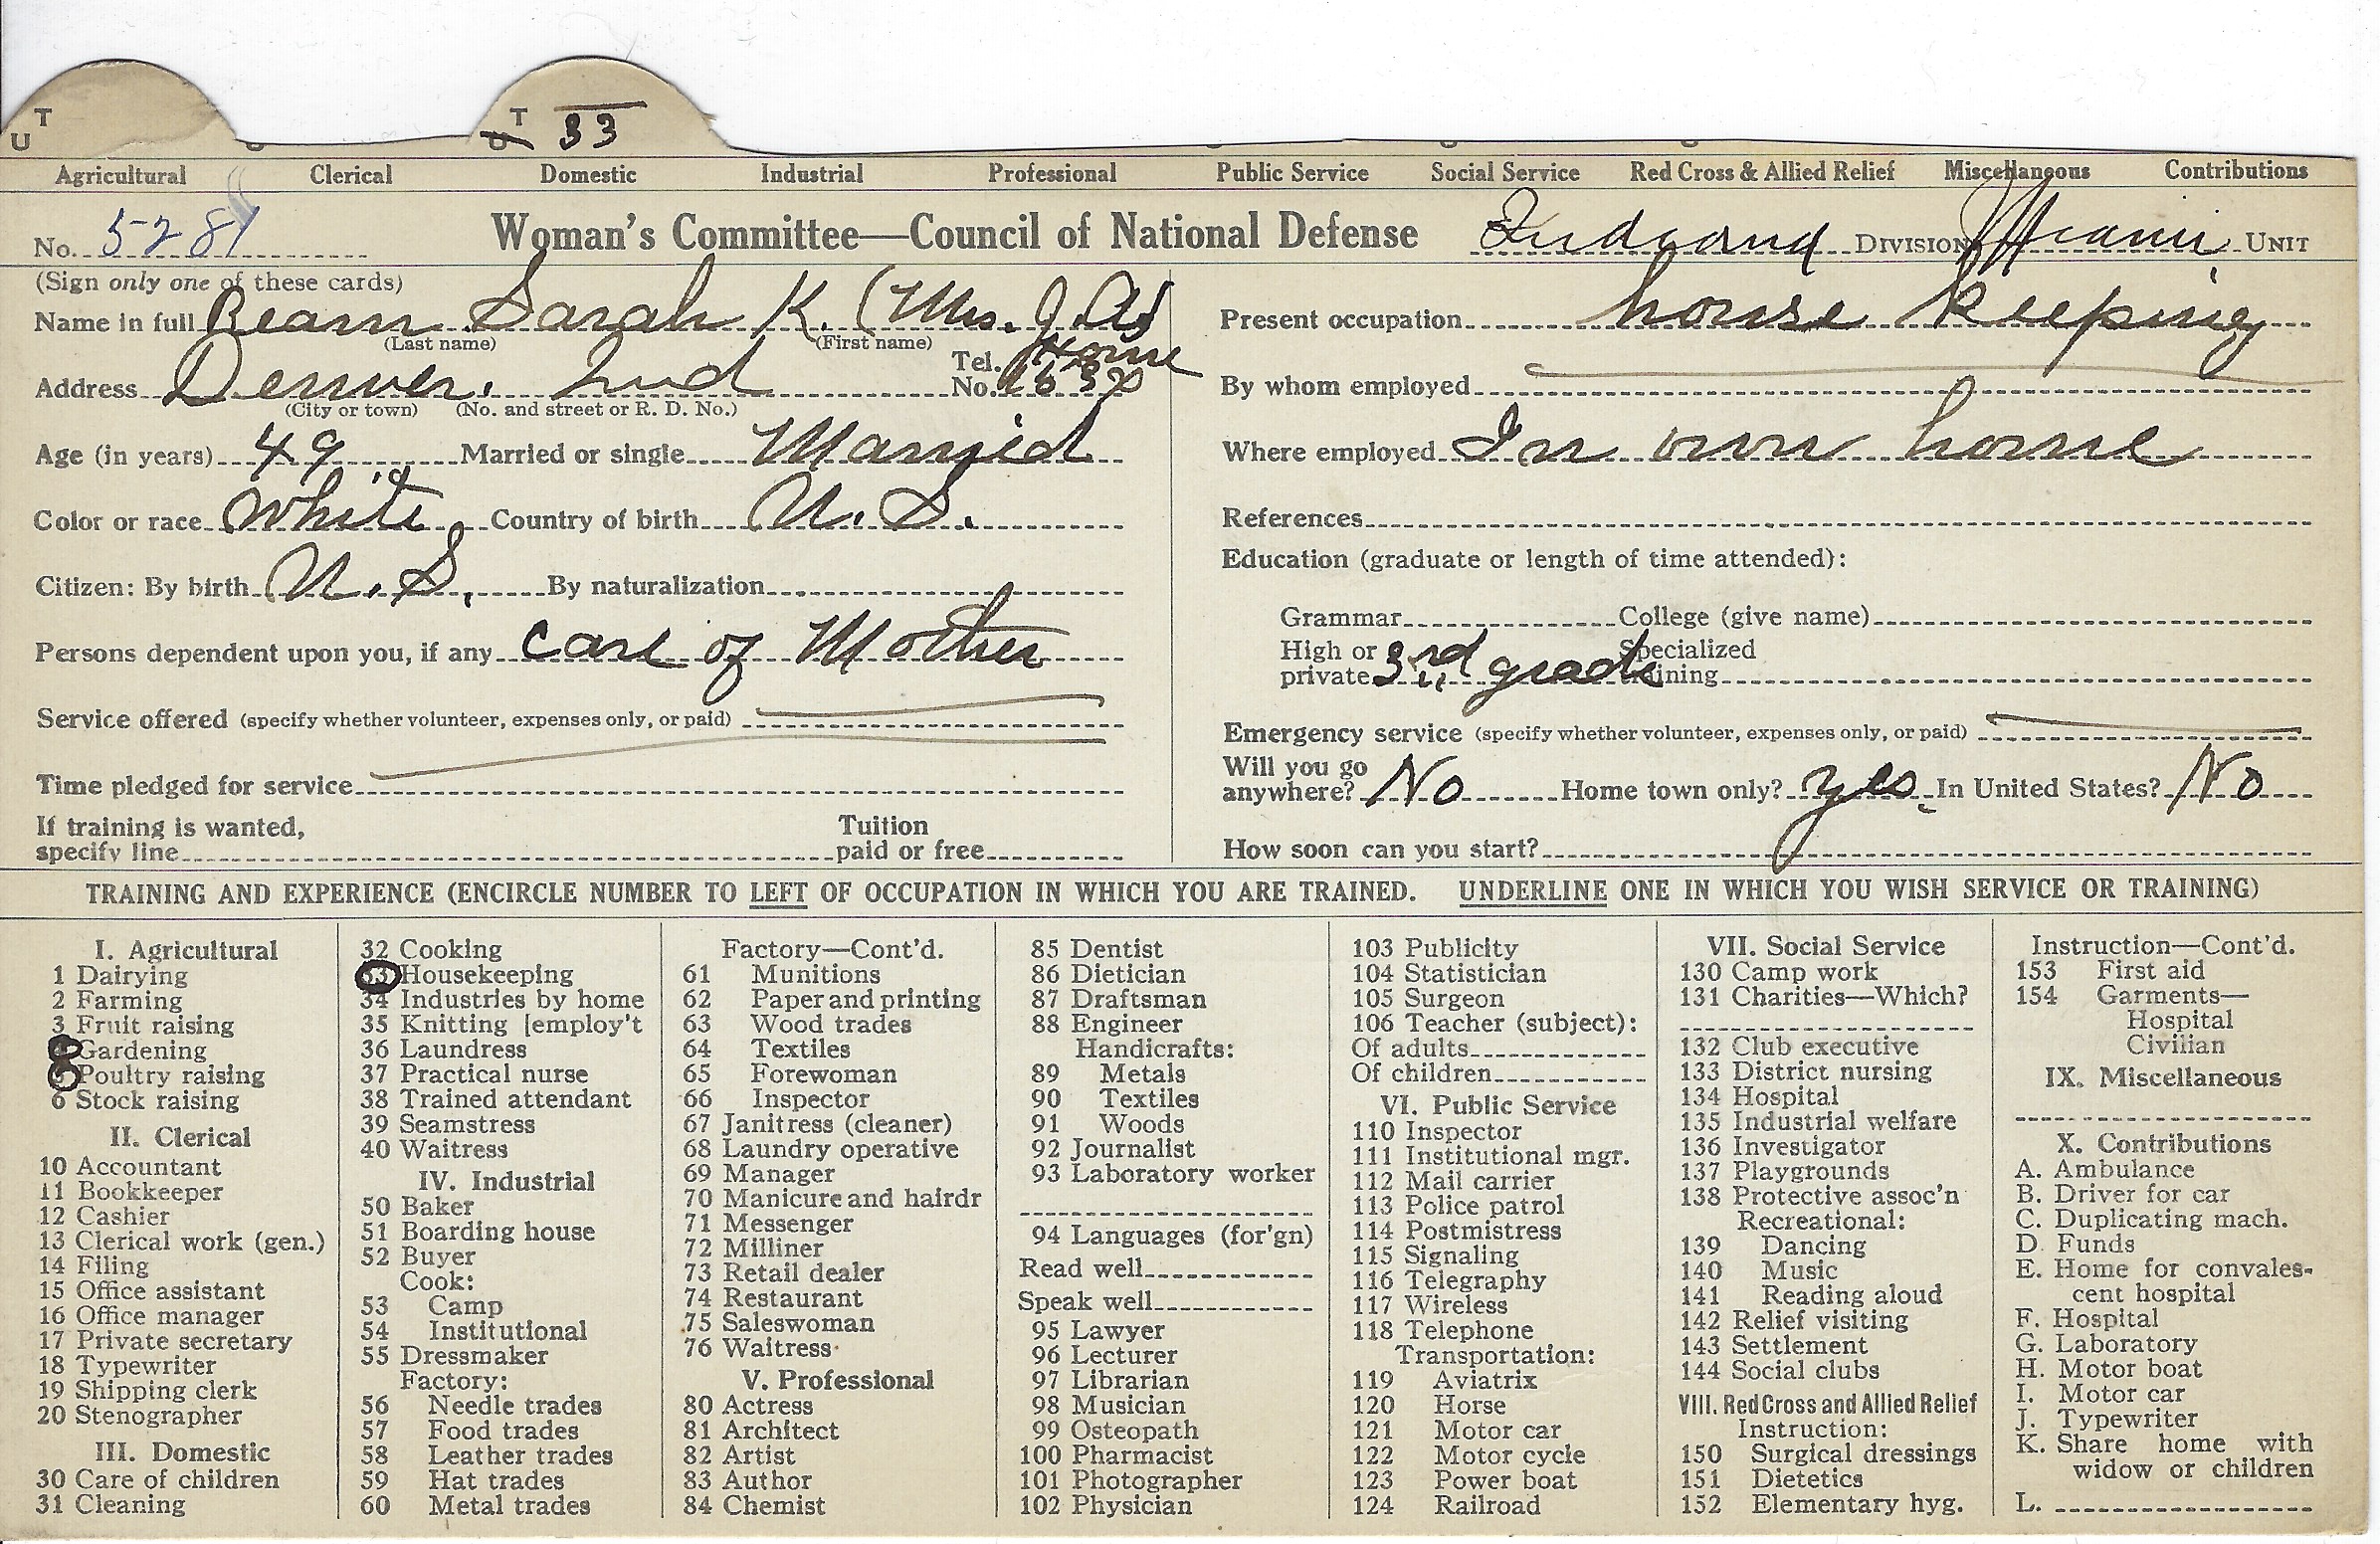 T
U
T
U 33
Agricultural Clerical Domestic Industrial Professional Public Service Social Service Red Cross & Allied Relief Miscellaneous Contributions
No. 5281 Woman's Committee—Council of National Defense Indiana Division Miami Unit
(Sign only one of these cards)
Name in full Beam Sarah K. (Mrs. J. A.)
(Last name) (First name)
Address Denver, Ind Tel. No. Home
(City or town) (No. and street or R. D. No.)
Age (in years) 49 Married or single Married
Color or race White Country of birth U. S.
Citizen: By birth U. S. By naturalization
Persons dependent upon you, if any Care of Mother
Service offered (specify whether volunteer, expenses only, or paid)
Time pledged for service
If training is wanted, Tuition
specify line paid or free
Present occupation house keeping
By whom employed
Where employed In own home
References
Education (graduate or length of time attended):
Grammar College (give name)
High or private 3rd grade Specialized training
Emergency service (specify whether volunteer, expenses only, or paid)
Will you go
anywhere? No Home town only? yes In United States? No
How soon can you start?
TRAINING AND EXPERIENCE (ENCIRCLE NUMBER TO LEFT OF OCCUPATION IN WHICH YOU ARE TRAINED. UNDERLINE ONE IN WHICH YOU WISH SERVICE OR TRAINING)
I. Agricultural
1 Dairying
2 Farming
3 Fruit raising
4 Gardening
5 Poultry raising
6 Stock raising
II. Clerical
10 Accountant
11 Bookkeeper
12 Cashier
13 Clerical work (gen.)
14 Filing
15 Office assistant
16 Office manager
17 Private secretary
18 Typewriter
19 Shipping clerk
20 Stenographer
III. Domestic
30 Care of children
31 Cleaning
32 Cooking
33 Housekeeping
34 Industries by home
35 Knitting [employ't
36 Laundress
37 Practical nurse
38 Trained attendant
39 Seamstress
40 Waitress
IV. Industrial
50 Baker
51 Boarding house
52 Buyer
Cook:
53 Camp
54 Institutional
55 Dressmaker
Factory:
56 Needle trades
57 Food trades
58 Leather trades
59 Hat trades
60 Metal trades
Factory—Cont'd.
61 Munitions
62 Paper and printing
63 Wood trades
64 Textiles
65 Forewoman
66 Inspector
67 Janitress (cleaner)
68 Laundry operative
69 Manager
70 Manicure and hairdr
71 Messenger
72 Milliner
73 Retail dealer
74 Restaurant
75 Saleswoman
76 Waitress
V. Professional
80 Actress
81 Architect
82 Artist
83 Author
84 Chemist
85 Dentist
86 Dietician
87 Draftsman
88 Engineer
Handicrafts:
89 Metals
90 Textiles
91 Woods
92 Journalist
93 Laboratory worker
94 Languages (for'gn)
Read well
Speak well
95 Lawyer
96 Lecturer
97 Librarian
98 Musician
99 Osteopath
100 Pharmacist
101 Photographer
102 Physician
103 Publicity
104 Statistician
105 Surgeon
106 Teacher (subject):
Of adults
Of children
VI. Public Service
110 Inspector
111 Institutional mgr.
112 Mail carrier
113 Police patrol
114 Postmistress
115 Signaling
116 Telegraphy
117 Wireless
118 Telephone
Transportation:
119 Aviatrix
120 Horse
121 Motor car
122 Motor cycle
123 Power boat
124 Railroad
VII. Social Service
130 Camp work
131 Charities—Which?
132 Club executive
133 District nursing
134 Hospital
135 Industrial welfare
136 Investigator
137 Playgrounds
138 Protective assoc'n
Recreational:
139 Dancing
140 Music
141 Reading aloud
142 Relief visiting
143 Settlement
144 Social clubs
VIII. Red Cross and Allied Relief
Instruction:
150 Surgical dressings
151 Dietetics
152 Elementary hyg.
Instruction—Cont'd.
153 First aid
154 Garments—
Hospital
Civilian
IX. Miscellaneous
X. Contributions
A. Ambulance
B. Driver for car
C. Duplicating mach.
D. Funds
E. Home for convales-
cent hospital
F. Hospital
G. Laboratory
H. Motor boat
I. Motor car
J. Typewriter
K. Share home with
widow or children
L.